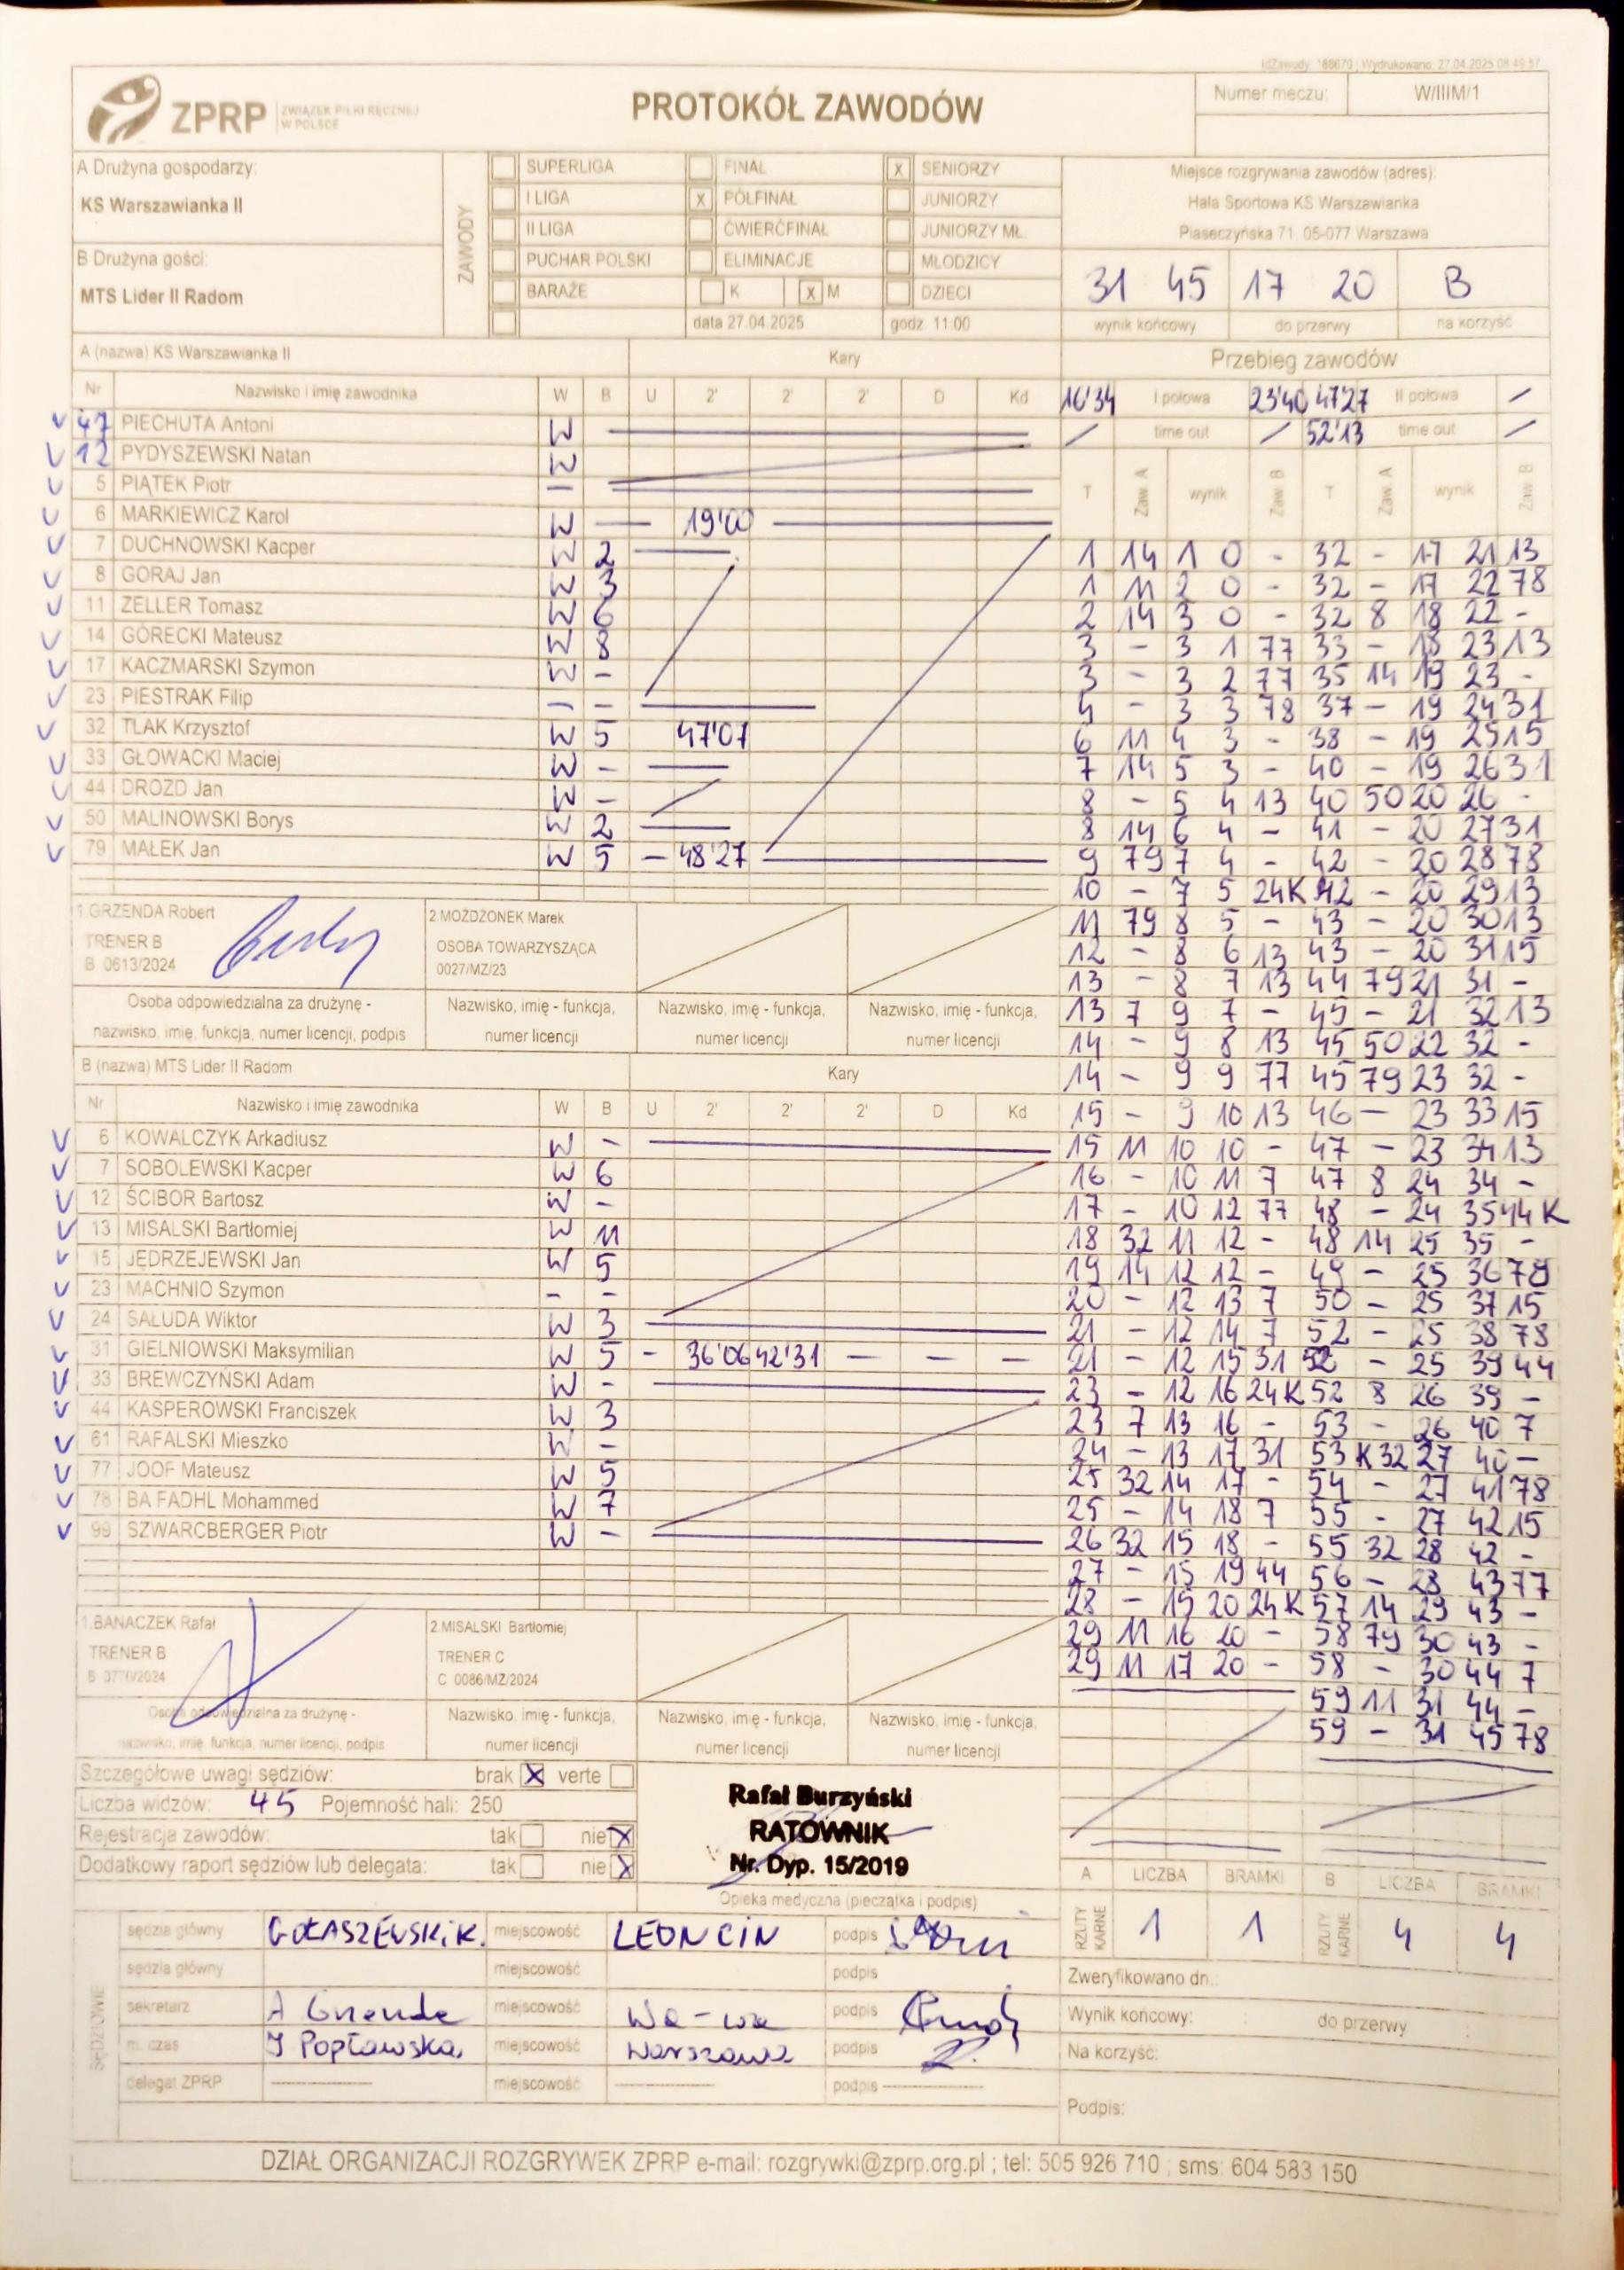 IdZawody: 188670 | Wydrukowano: 27.04.2025 08:49:57
ZPRP ZWIĄZEK PIŁKI RĘCZNEJ W POLSCE
PROTOKÓŁ ZAWODÓW
Numer meczu: W/IIIM/1
A Drużyna gospodarzy:
KS Warszawianka II
B Drużyna gości:
MTS Lider II Radom
ZAWODY
SUPERLIGA FINAŁ X SENIORZY
I LIGA X PÓŁFINAŁ JUNIORZY
II LIGA ĆWIERĆFINAŁ JUNIORZY MŁ.
PUCHAR POLSKI ELIMINACJE MŁODZICY
BARAŻE K X M DZIECI
data 27.04.2025 godz. 11:00
Miejsce rozgrywania zawodów (adres):
Hala Sportowa KS Warszawianka
Piaseczyńska 71, 05-077 Warszawa
31 45 17 20 B
wynik końcowy do przerwy na korzyść
A (nazwa) KS Warszawianka II Kary
Nr Nazwisko i imię zawodnika W B U 2' 2' 2' D Kd
47 PIECHUTA Antoni W
12 PYDYSZEWSKI Natan W
5 PIĄTEK Piotr –
6 MARKIEWICZ Karol W – 19'00
7 DUCHNOWSKI Kacper W 2
8 GORAJ Jan W 3
11 ZELLER Tomasz W 6
14 GÓRECKI Mateusz W 8
17 KACZMARSKI Szymon W -
23 PIESTRAK Filip – -
32 TLAK Krzysztof W 5 47'07
33 GŁOWACKI Maciej W -
44 DROZD Jan W -
50 MALINOWSKI Borys W 2
79 MAŁEK Jan W 5 – 48'27
1.GRZENDA Robert
TRENER B
B 0613/2024
2.MOŻDŻONEK Marek
OSOBA TOWARZYSZĄCA
0027/MZ/23
Osoba odpowiedzialna za drużynę - nazwisko, imię, funkcja, numer licencji, podpis
Nazwisko, imię - funkcja, numer licencji
Nazwisko, imię - funkcja, numer licencji
Nazwisko, imię - funkcja, numer licencji
B (nazwa) MTS Lider II Radom Kary
Nr Nazwisko i imię zawodnika W B U 2' 2' 2' D Kd
6 KOWALCZYK Arkadiusz W -
7 SOBOLEWSKI Kacper W 6
12 ŚCIBOR Bartosz W -
13 MISALSKI Bartłomiej W 11
15 JĘDRZEJEWSKI Jan W 5
23 MACHNIO Szymon - -
24 SAŁUDA Wiktor W 3
31 GIELNIOWSKI Maksymilian W 5 - 36'06 42'31 – – –
33 BREWCZYŃSKI Adam W -
44 KASPEROWSKI Franciszek W 3
61 RAFALSKI Mieszko W -
77 JOOF Mateusz W 5
78 BA FADHL Mohammed W 7
99 SZWARCBERGER Piotr W -
1.BANACZEK Rafał
TRENER B
B 0770/2024
2.MISALSKI Bartłomiej
TRENER C
C 0086/MZ/2024
Osoba odpowiedzialna za drużynę - nazwisko, imię, funkcja, numer licencji, podpis
Nazwisko, imię - funkcja, numer licencji
Nazwisko, imię - funkcja, numer licencji
Nazwisko, imię - funkcja, numer licencji
Szczegółowe uwagi sędziów: brak X verte
Liczba widzów: 45 Pojemność hali: 250
Rejestracja zawodów: tak nie X
Dodatkowy raport sędziów lub delegata: tak nie X
Rafał Burzyński
RATOWNIK
Nr. Dyp. 15/2019
Opieka medyczna (pieczątka i podpis)
SĘDZIOWIE
sędzia główny GOŁASZEWSKI K. miejscowość LEONCIN podpis
sędzia główny miejscowość podpis
sekretarz A Grzenda miejscowość Wa-wa podpis
m. czas J Popławska miejscowość Warszawa podpis
delegat ZPRP miejscowość podpis
Przebieg zawodów
16'34 I połowa 23'40 47'27 II połowa /
/ time out / 52'13 time out /
T Zaw. A wynik Zaw. B T Zaw. A wynik Zaw. B
1 14 1 0 - 32 - 17 21 13
1 11 2 0 - 32 - 17 22 78
2 14 3 0 - 32 8 18 22 -
3 - 3 1 77 33 - 18 23 13
3 - 3 2 77 35 14 19 23 -
4 - 3 3 78 37 - 19 24 31
6 11 4 3 - 38 - 19 25 15
7 14 5 3 - 40 - 19 26 31
8 - 5 4 13 40 50 20 26 -
8 14 6 4 - 41 - 20 27 31
9 79 7 4 - 42 - 20 28 78
10 - 7 5 24K 42 - 20 29 13
11 79 8 5 - 43 - 20 30 13
12 - 8 6 13 43 - 20 31 15
13 - 8 7 13 44 79 21 31 -
13 7 9 7 - 45 - 21 32 13
14 - 9 8 13 45 50 22 32 -
14 - 9 9 77 45 79 23 32 -
15 - 9 10 13 46 - 23 33 15
15 11 10 10 - 47 - 23 34 13
16 - 10 11 7 47 8 24 34 -
17 - 10 12 77 48 - 24 35 44K
18 32 11 12 - 48 14 25 35 -
19 14 12 12 - 49 - 25 36 78
20 - 12 13 7 50 - 25 37 15
21 - 12 14 7 52 - 25 38 78
21 - 12 15 31 52 - 25 39 44
23 - 12 16 24K 52 8 26 39 -
23 7 13 16 - 53 - 26 40 7
24 - 13 17 31 53 K32 27 40 -
25 32 14 17 - 54 - 27 41 78
25 - 14 18 7 55 - 27 42 15
26 32 15 18 - 55 32 28 42 -
27 - 15 19 44 56 - 28 43 77
28 - 15 20 24K 57 14 29 43 -
29 11 16 20 - 58 79 30 43 -
29 11 17 20 - 58 - 30 44 7
59 11 31 44 -
59 - 31 45 78
A LICZBA BRAMKI B LICZBA BRAMKI
RZUTY KARNE 1 1 RZUTY KARNE 4 4
Zweryfikowano dn.:
Wynik końcowy: : do przerwy :
Na korzyść:
Podpis:
DZIAŁ ORGANIZACJI ROZGRYWEK ZPRP e-mail: rozgrywki@zprp.org.pl ; tel: 505 926 710 ; sms: 604 583 150